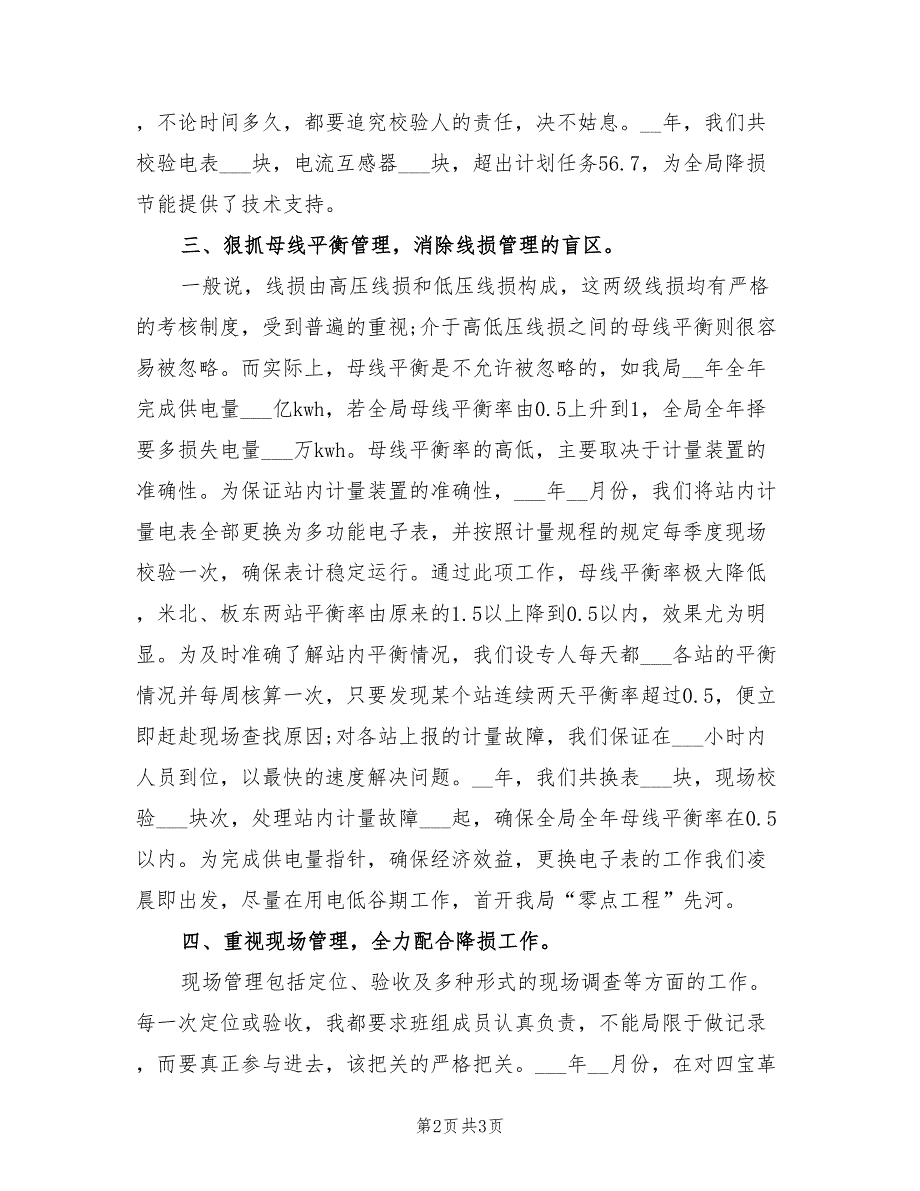 ，不论时间多久，都要追究校验人的责任，决不姑息。__年，我们共
校验电表___块，电流互感器___块，超出计划任务56.7，为全局降损
节能提供了技术支持。
三、狠抓母线平衡管理，消除线损管理的盲区。
一般说，线损由高压线损和低压线损构成，这两级线损均有严格
的考核制度，受到普遍的重视;介于高低压线损之间的母线平衡则很容
易被忽略。而实际上，母线平衡是不允许被忽略的，如我局__年全年
完成供电量___亿kwh，若全局母线平衡率由0.5上升到1，全局全年择
要多损失电量___万kwh。母线平衡率的高低，主要取决于计量装置的
准确性。为保证站内计量装置的准确性，___年__月份，我们将站内计
量电表全部更换为多功能电子表，并按照计量规程的规定每季度现场
校验一次，确保表计稳定运行。通过此项工作，母线平衡率极大降低
，米北、板东两站平衡率由原来的1.5以上降到0.5以内，效果尤为明
显。为及时准确了解站内平衡情况，我们设专人每天都___各站的平衡
情况并每周核算一次，只要发现某个站连续两天平衡率超过0.5，便立
即赶赴现场查找原因;对各站上报的计量故障，我们保证在___小时内
人员到位，以最快的速度解决问题。__年，我们共换表___块，现场校
验___块次，处理站内计量故障___起，确保全局全年母线平衡率在0.5
以内。为完成供电量指针，确保经济效益，更换电子表的工作我们凌
晨即出发，尽量在用电低谷期工作，首开我局“零点工程”先河。
四、重视现场管理，全力配合降损工作。
现场管理包括定位、验收及多种形式的现场调查等方面的工作。
每一次定位或验收，我都要求班组成员认真负责，不能局限于做记录
，而要真正参与进去，该把关的严格把关。___年__月份，在对四宝革
第2页共3页